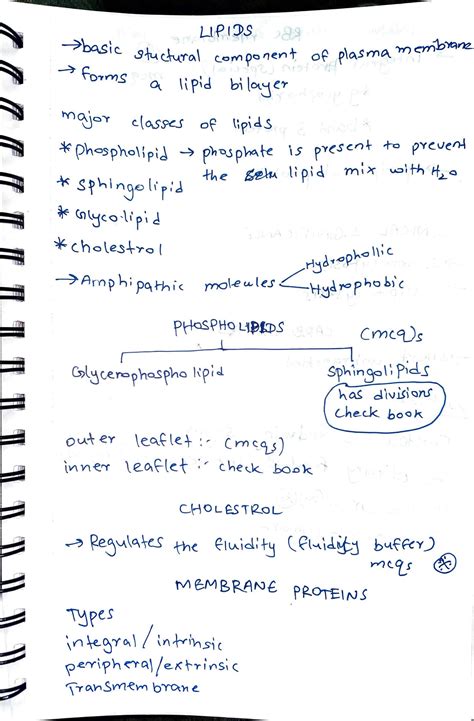 LIPIDS
→basic stuctural component of plasma membrane
→ forms a lipid bilayer
major classes of lipids
* phospholipid → phosphate is present to prevent
the lipid mix with H2O
* sphingolipid
* Glyco-lipid
* cholestrol
→ Amphipathic moleules
Hydrophollic
Hydrophobic
PHOSPHOLIPIDS
(mcq)s
Glycerophospholipid
Sphingolipids
has divisions
check book
outer leaflet :- (mcqs)
inner leaflet :- check book
CHOLESTROL
→ Regulates the fluidity (fluidity buffer)
mcqs
MEMBRANE PROTEINS
Types
integral/intrinsic
peripheral/extrinsic
Transmembrane